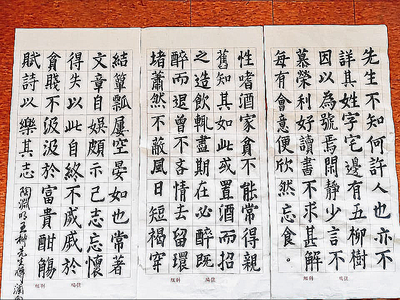 先生不知何許人也亦不
詳其姓字宅邊有五柳樹
因以為號焉閑靜少言不
慕榮利好讀書不求甚解
每有會意便欣然忘食。
性嗜酒家貧不能常得親
舊知其如此或置酒而招
之造飲輒盡期在必醉既
醉而退曾不吝情去留環
堵蕭然不蔽風日短褐穿
結簞瓢屢空晏如也常著
文章自娛頗示己志忘懷
得失以此自終不戚戚於
貧賤不汲汲於富貴酣觴
賦詩以樂其志 陶淵明五柳先生傳